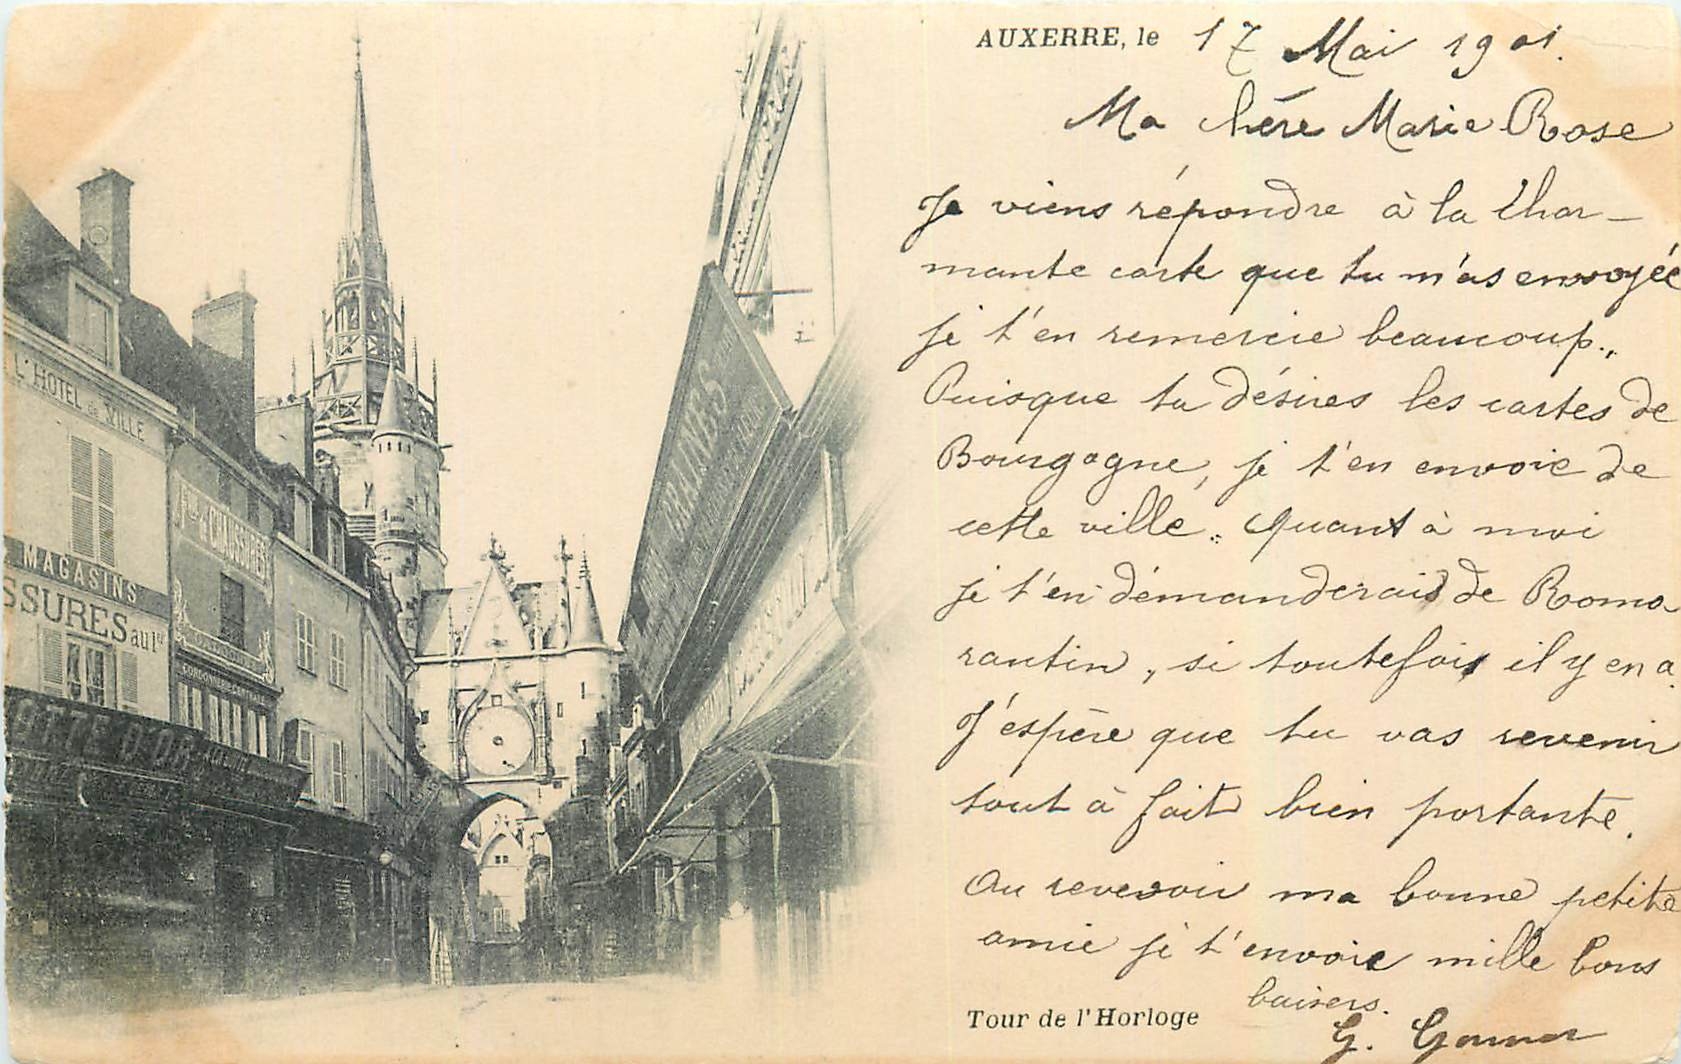 AUXERRE, le 17 Mai 1901.
Ma chère Marie Rose
Je viens répondre à la char-
mante carte que tu m'as envoyée
je t'en remercie beaucoup.,
Puisque tu désires les cartes de
Bourgogne, je t'en envoie de
cette ville. Quant à moi
je t'en démanderais de Romo
rantin, si toutefois il y en a.
J'espère que tu vas revenir
tout à fait bien portante.
Au revevoir ma bonne petite
amie je t'envoie mille bons
baisers.
G.
Tour de l'Horloge
L'HOTEL de VILLE
MAGASINS
SSURES au 1er
CHAUSSURES
CORDONNERIE CENTRALE
OTTE D'OR
GRAINES